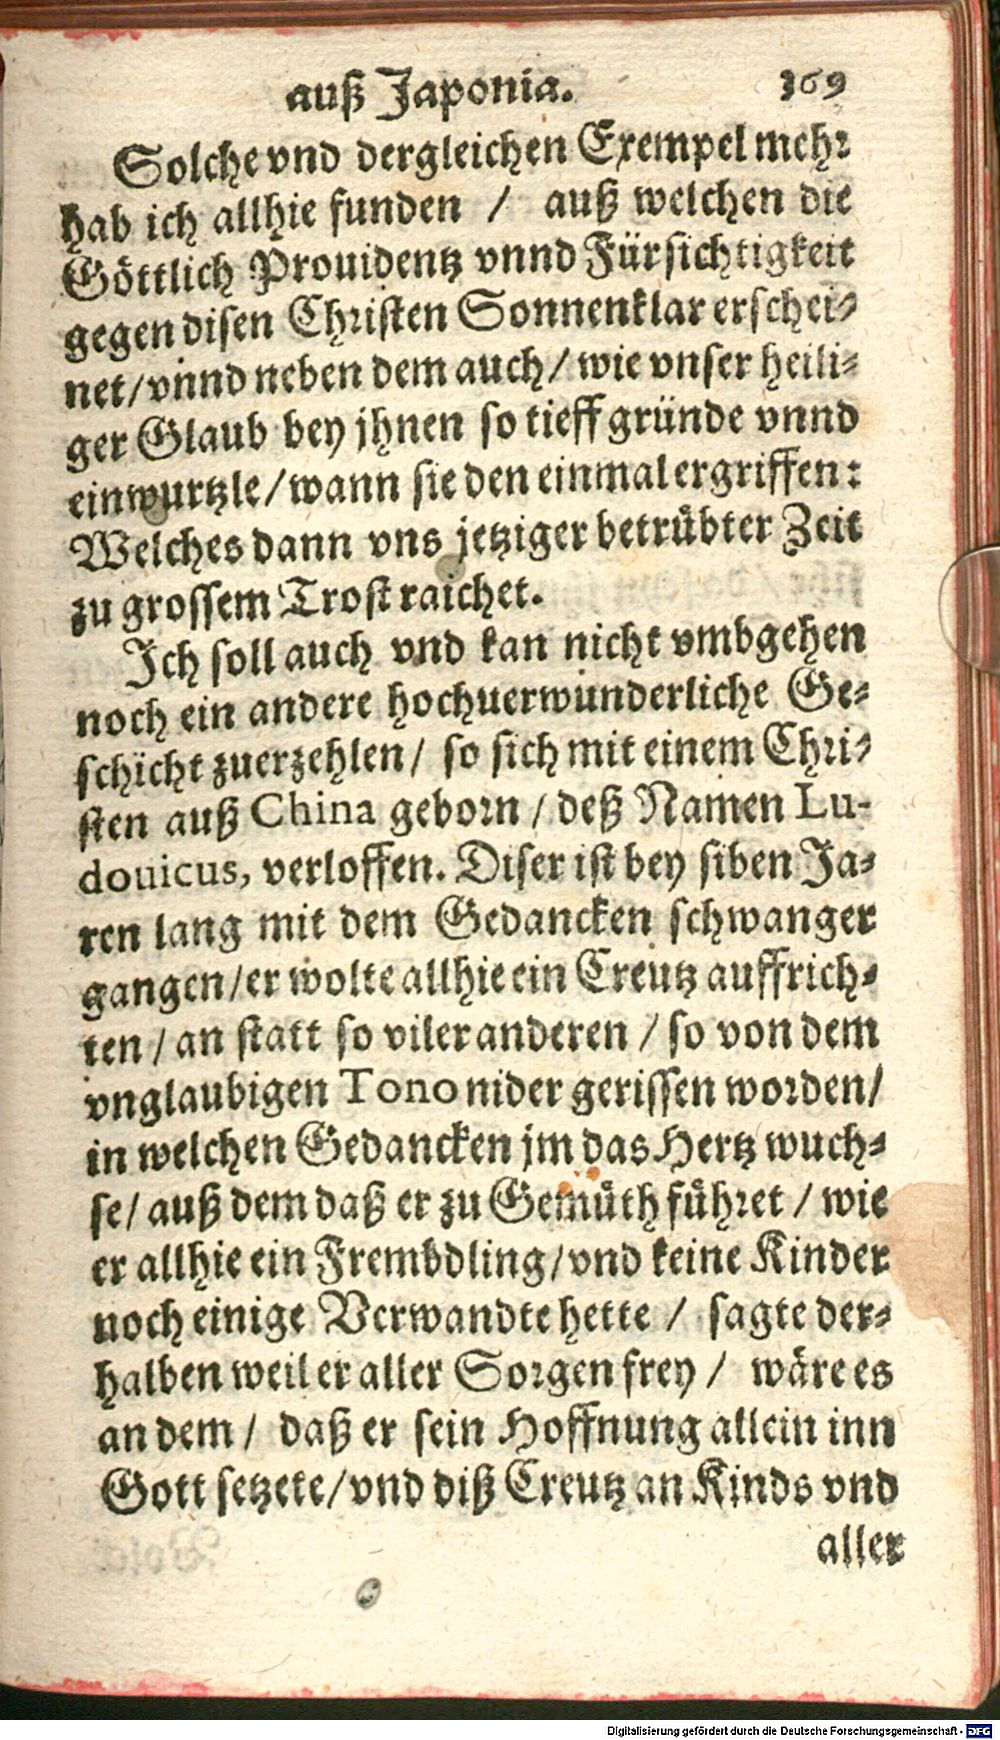 auß Japonia. 369
Solche vnd dergleichen Exempel mehr
hab ich allhie funden / auß welchen die
Göttlich Prouidentz vnnd Fürsichtigkeit
gegen disen Christen Sonnenklar erschei-
net / vnnd neben dem auch / wie vnser heili-
ger Glaub bey jhnen so tieff gründe vnnd
einwurtzle / wann sie den einmal ergriffen:
Welches dann vns jetziger betrübter Zeit
zu grossem Trost raichet.
Ich soll auch vnd kan nicht vmbgehen
noch ein andere hochuerwunderliche Ge-
schicht zuerzehlen / so sich mit einem Chri-
sten auß China geborn / deß Namen Lu-
douicus, verloffen. Diser ist bey siben Ja-
ren lang mit dem Gedancken schwanger
gangen / er wolte allhie ein Creutz auffrich-
ten / an statt so viler anderen / so von dem
vnglaubigen Tono nider gerissen worden /
in welchen Gedancken jm das Hertz wuch-
se / auß dem daß er zu Gemüth führet / wie
er allhie ein Frembdling / vnd keine Kinder
noch einige Verwandte hette / sagte der-
halben weil er aller Sorgen frey / wäre es
an dem / daß er sein Hoffnung allein inn
Gott setzete / vnd diß Creutz an Kinds vnd
aller
Digitalisierung gefördert durch die Deutsche Forschungsgemeinschaft - DFG